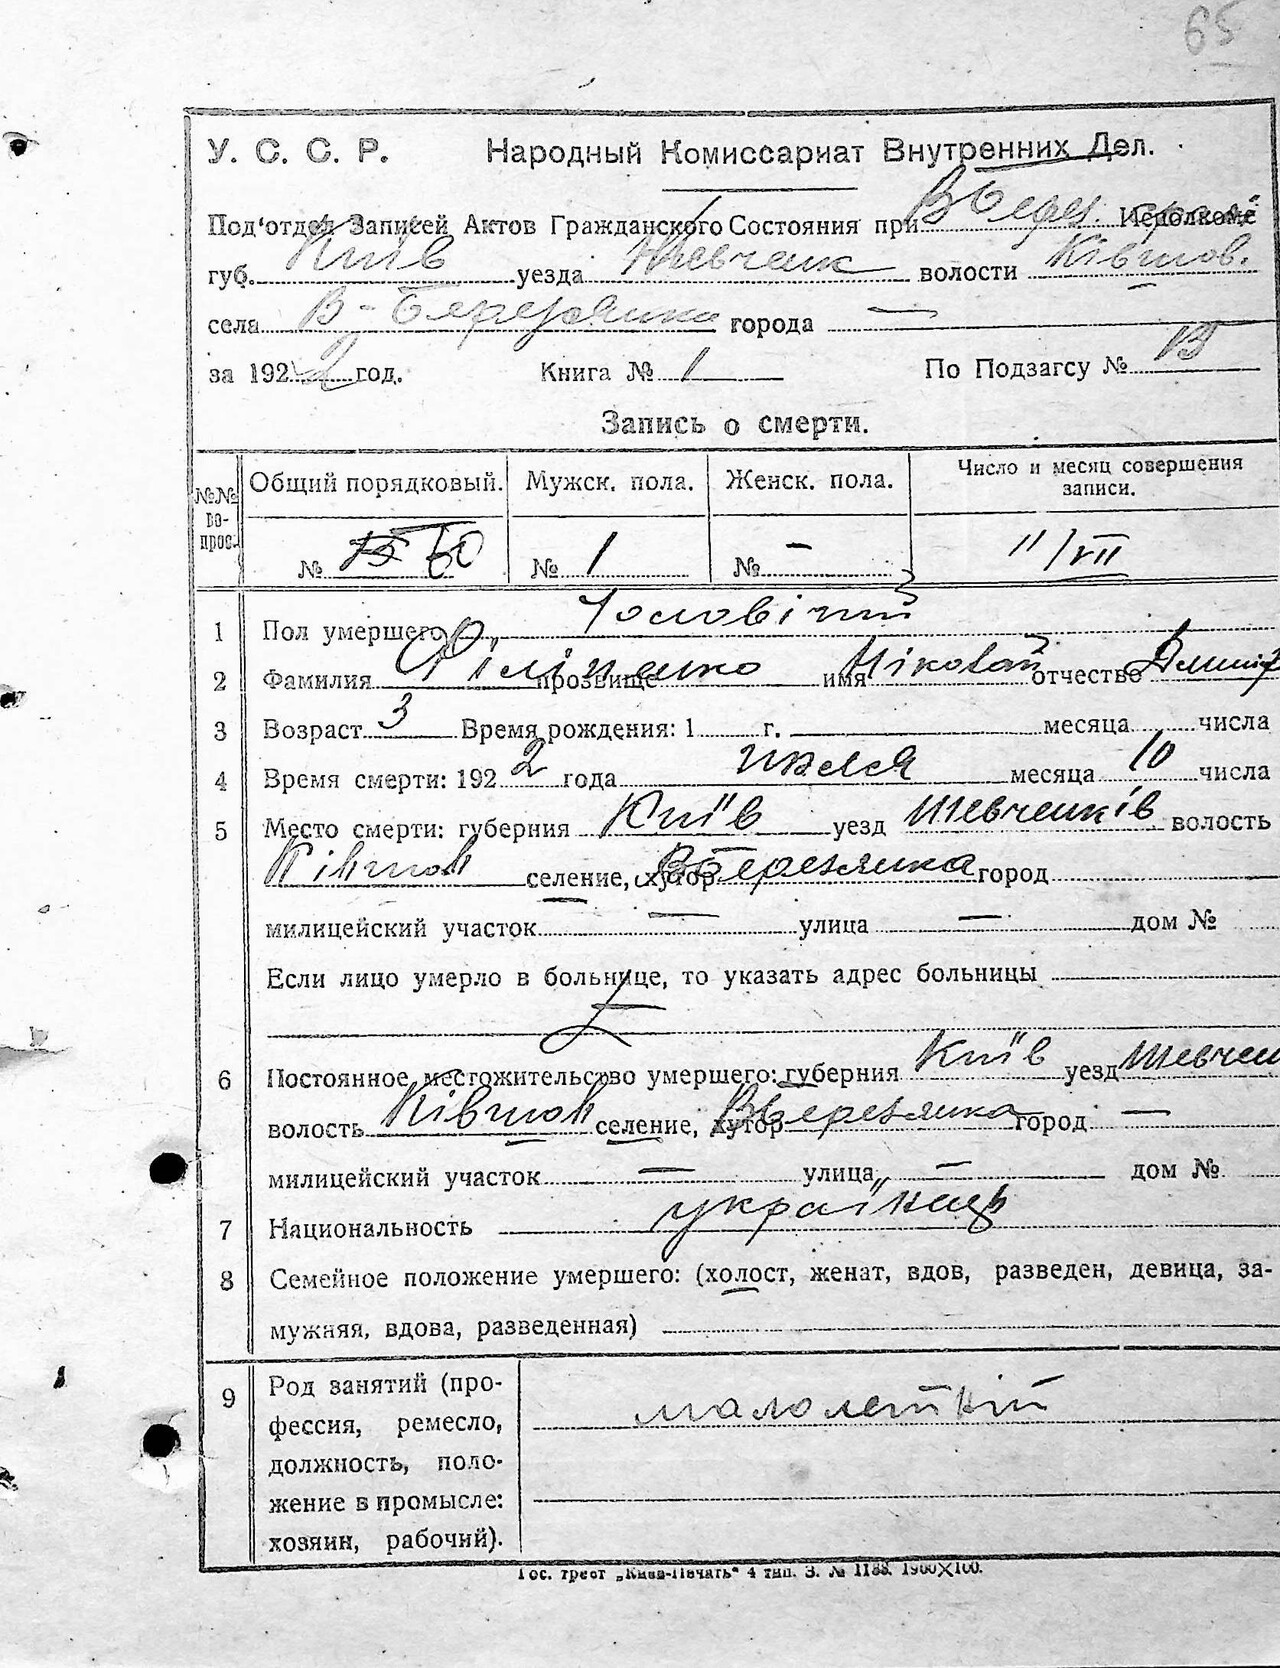 65
У. С. С. Р. Народный Комиссариат Внутренних Дел.
Под'отдел Записей Актов Гражданского Состояния при В Берез. Исполкоме
губ. Київ уезда Шевченк волости Ківшов.
села В-Березянка города —
за 1922 год. Книга № 1 По Подзагсу №
Запись о смерти.
№№ вопрос. Общий порядковый. Мужск. пола. Женск. пола. Число и месяц совершения записи.
№ 60 № 1 № - 11/VII
1 Пол умершего Чоловічий
2 Фамилия Філіпенко прозвище имя Ніколай отчество
3 Возраст 3 Время рождения: 1 г. месяца числа
4 Время смерти: 1922 года июля месяца 10 числа
5 Место смерти: губерния Київ уезд Шевченків волость
Ківшов селение, хутор ВБерезянка город
милицейский участок — улица — дом №
Если лицо умерло в больнице, то указать адрес больницы
6 Постоянное местожительство умершего: губерния Київ уезд Шевчен
волость Ківшов селение, хутор ВБерезянка город —
милицейский участок — улица — дом №
7 Национальность українець
8 Семейное положение умершего: (холост, женат, вдов, разведен, девица, за-
мужняя, вдова, разведенная)
9 Род занятий (про-
фессия, ремесло, малолетній
должность, поло-
жение в промысле:
хозяин, рабочий).
Гос. трест „Киев-Печать“ 4 тип. З. № 1188. 1900×100.